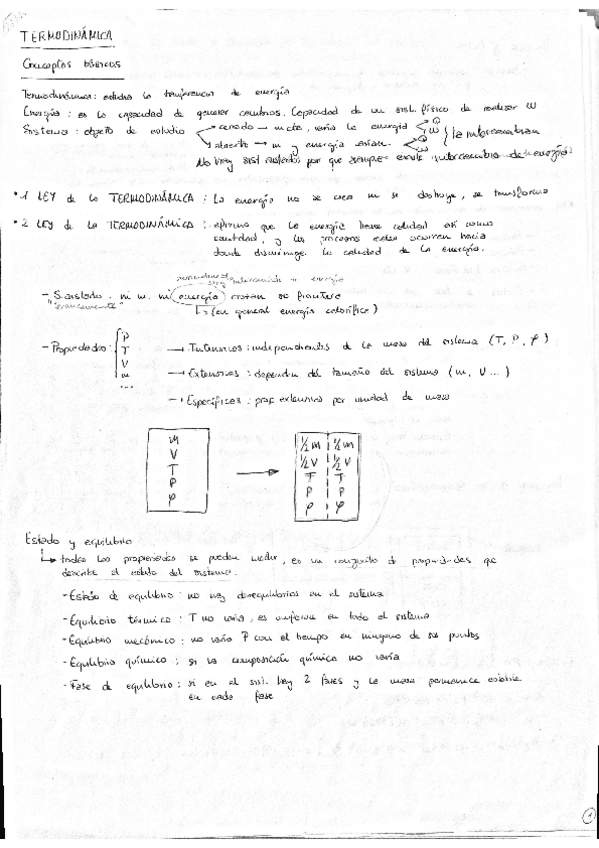 TERMODINÁMICA
Conceptos básicos
Termodinámica: estudia la transferencia de energía
Energía: es la capacidad de generar cambios. Capacidad de un sist. físico de realizar W
Sistema: objeto de estudio
cerrado → m cte, varía la energía
abierto → m y energía varían
Q
W
Q
W
se intercambian
No hay sist aislados por que siempre existe intercambio de energía
• 1 LEY de la TERMODINÁMICA: La energía no se crea ni se destruye, se transforma
• 2 LEY de la TERMODINÁMICA: afirma que la energía tiene calidad así como
cantidad, y los procesos reales ocurren hacia
donde disminuye la calidad de la energía.
intercambia energía
- S. aislado. ni m. ni energía cruzan su frontera
↳ (en general energía calorífica)
- Propiedades:
P
T
V
m
...
→ Intensivas: independientes de la masa del sistema (T, P, ρ)
→ Extensivas: dependen del tamaño del sistema (m, V...)
→ Específicas: prop extensiva por unidad de masa
m
V
T
P
ρ
½ m ½ m
½ V ½ V
T T
P P
ρ ρ
Estado y equilibrio
↳ todas las propiedades se pueden medir, es un conjunto de propiedades que
describe el estado del sistema.
- Estado de equilibrio: no hay desequilibrios en el sistema
- Equilibrio térmico: T no varía, es uniforme en todo el sistema
- Equilibrio mecánico: no varía P con el tiempo en ninguno de sus puntos
- Equilibrio químico: si la composición química no varía
- Fase de equilibrio: si en el sist. hay 2 fases y la masa permanece estable
en cada fase
1